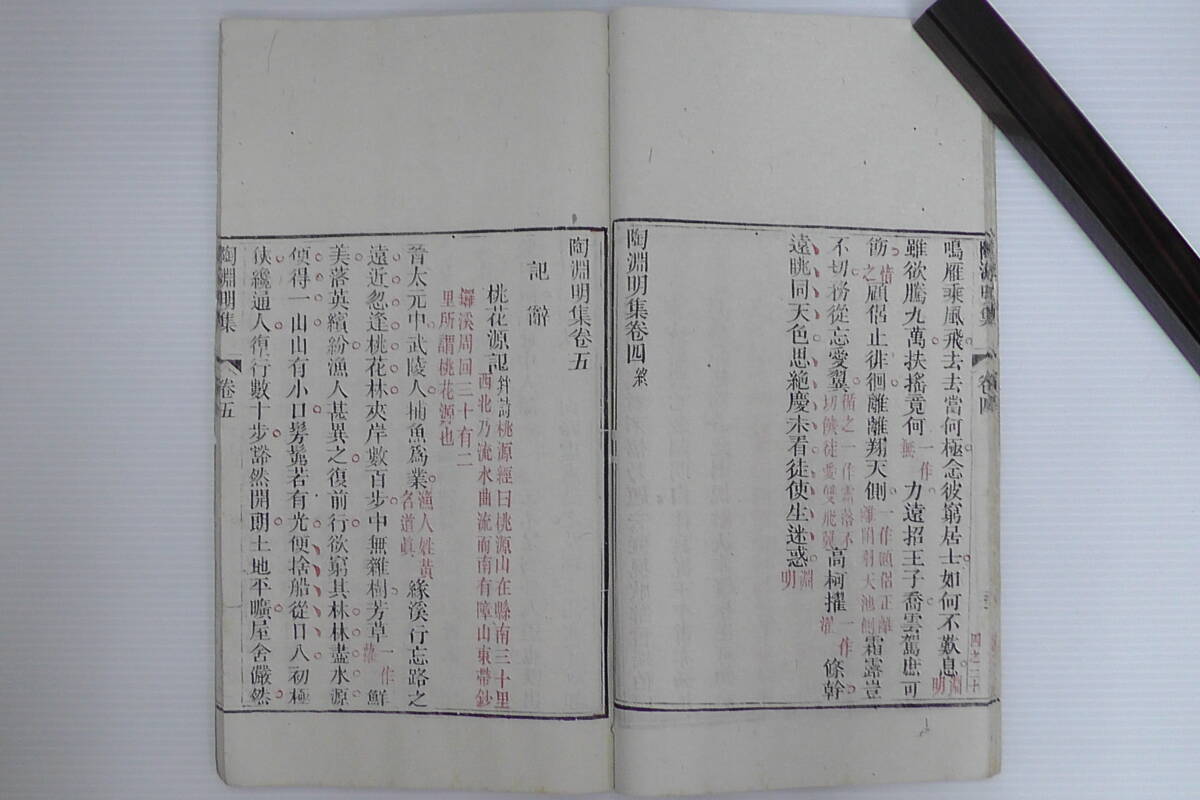 鳴雁乘風飛去去當何極念彼窮居士如何不歎息淵明
雖欲騰九萬扶搖竟何一作無力遠招王子喬雲駕庶可
飭一作之顧侶止徘徊離離翔天側霜露豈
不切務從忘愛翼高柯擢一作濯條幹
遠眺同天色思絕慶未看徒使生迷惑淵明
陶淵明集卷四終
陶淵明集卷五
記
桃花源記并詩桃源經曰桃源山在縣南三十里
西北乃流水曲流而南有障山東帶鈔
鑼溪周回三十有二
里所謂桃花源也
晉太元中武陵人捕魚爲業漁人姓黃名道眞緣溪行忘路之
遠近忽逢桃花林夾岸數百步中無雜樹芳草一作華鮮
美落英繽紛漁人甚異之復前行欲窮其林林盡水源
便得一山山有小口髣髴若有光便捨船從口入初極
狹纔通人復行數十步豁然開朗土地平曠屋舍儼然
陶淵明集 卷五